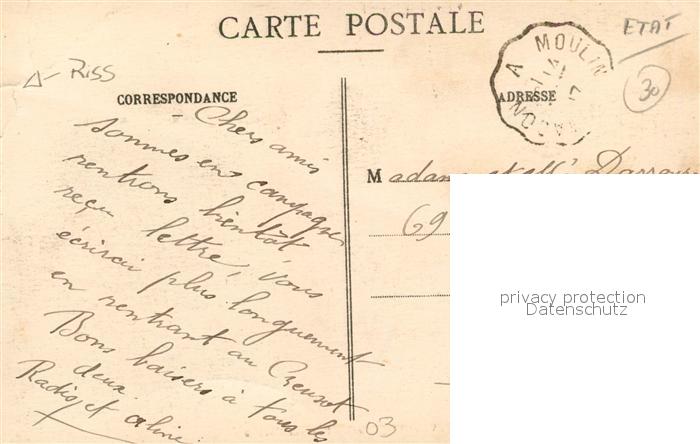 CARTE POSTALE
ETAT
30
Riss
A MOULIN
MACON
14
17
CORRESPONDANCE
ADRESSE
Chers amis
sommes en campagne
rentrons bientôt
reçu lettre, vous
écrirai plus longuement
en rentrant au Creusot
Bons baisers à tous les
deux.
Radis et Aline
Madame et Mr
69
03
privacy protection
Datenschutz